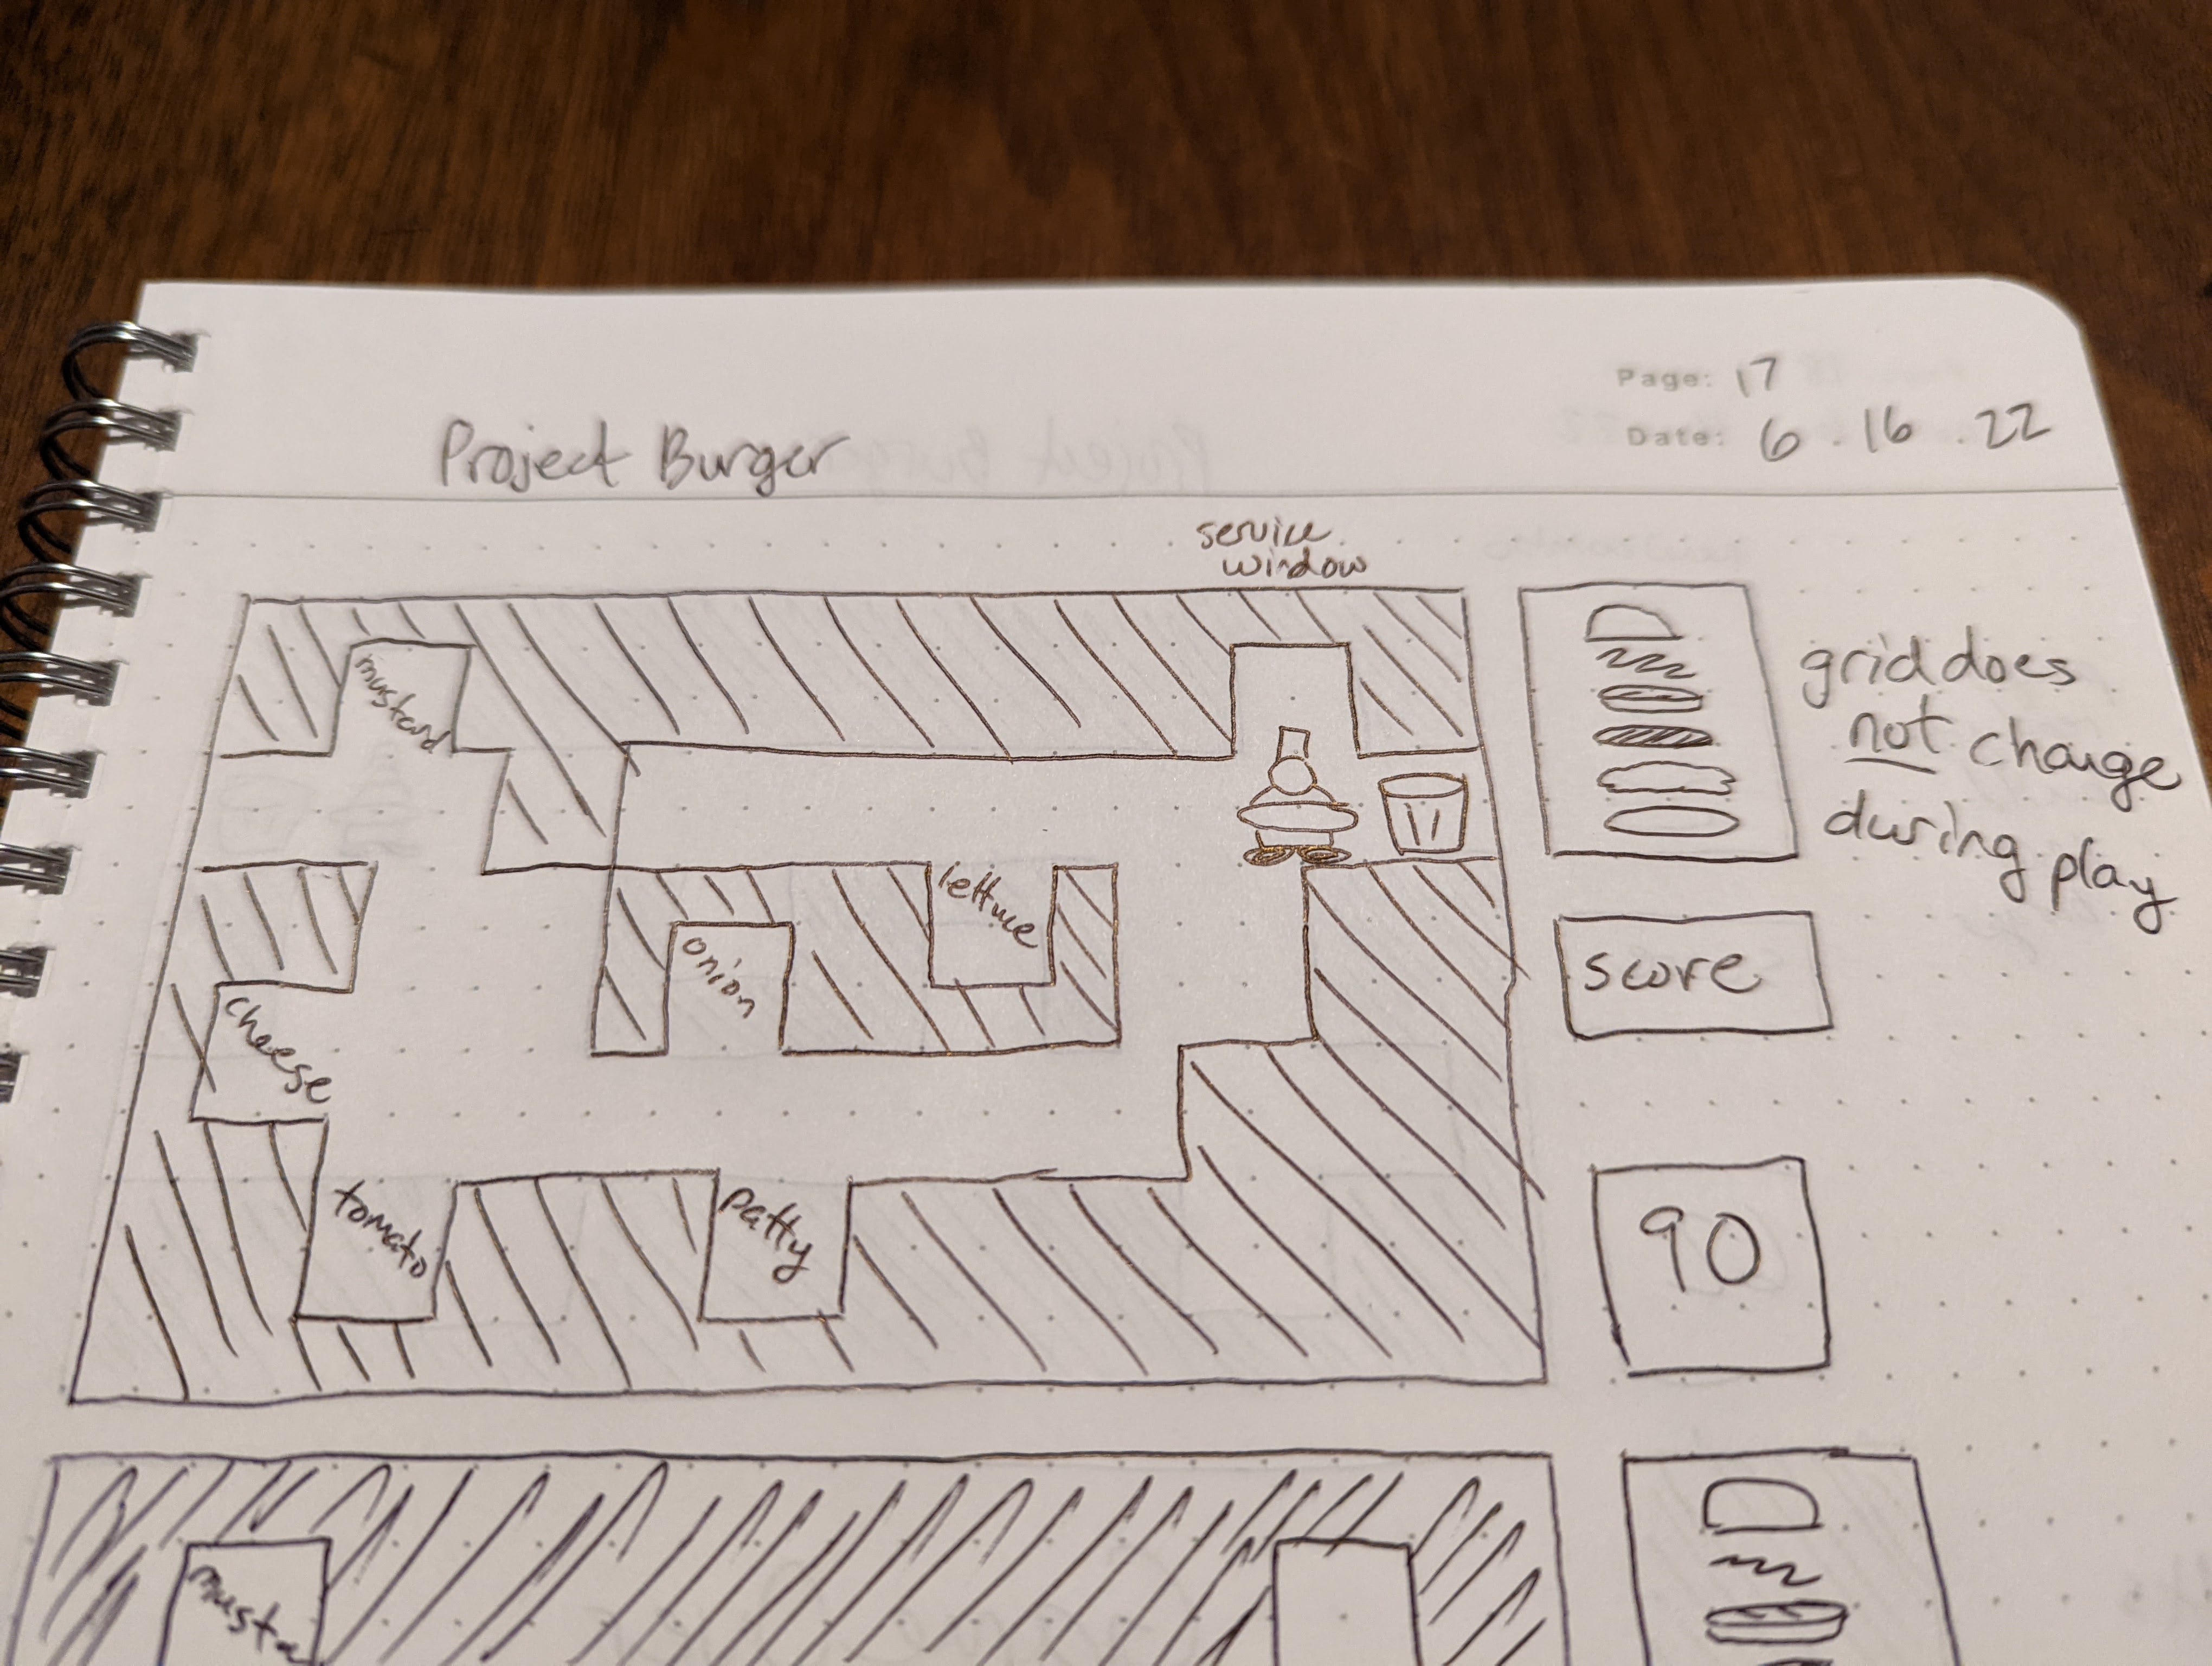 Page: 17
Date: 6 . 16 . 22
Project Burger
service
window
mustard
lettuce
onion
cheese
tomato
patty
grid does
not change
during play
score
90
musta